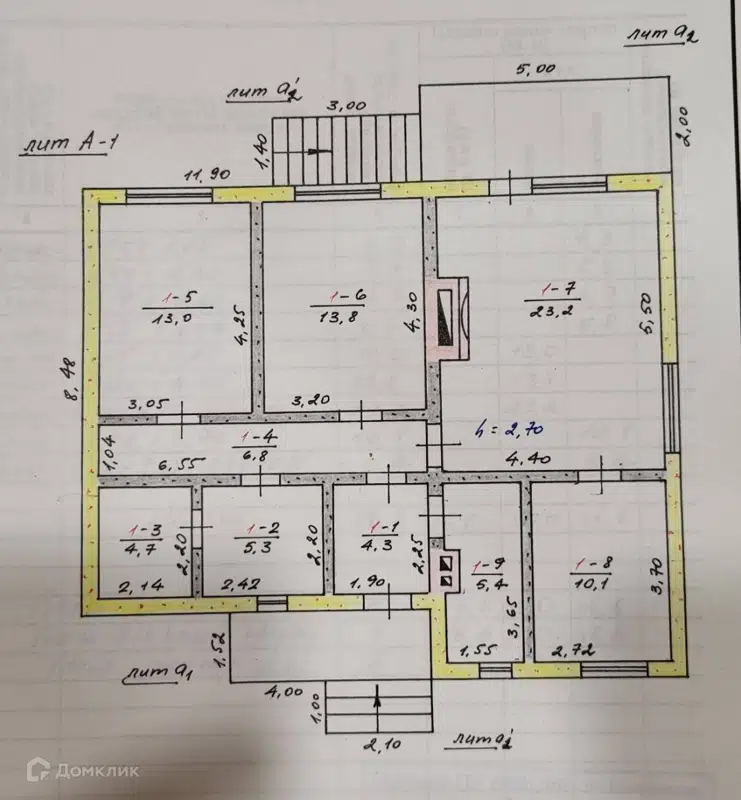 лит а2
лит а'2
5,00
3,00
2,00
1,40
лит А-1
11,90
1-5
13,0
4,25
3,05
1-6
13,8
4,30
3,20
1-7
23,2
5,50
8,48
h = 2,70
4,40
1-4
6,8
1,04
6,55
1-3
4,7
2,20
2,14
1-2
5,3
2,20
2,42
1-1
4,3
2,25
1,90
1-9
5,4
3,65
1,55
1-8
10,1
3,70
2,72
1,52
лит а1
4,00
1,00
2,10
лит а'1
Домклик